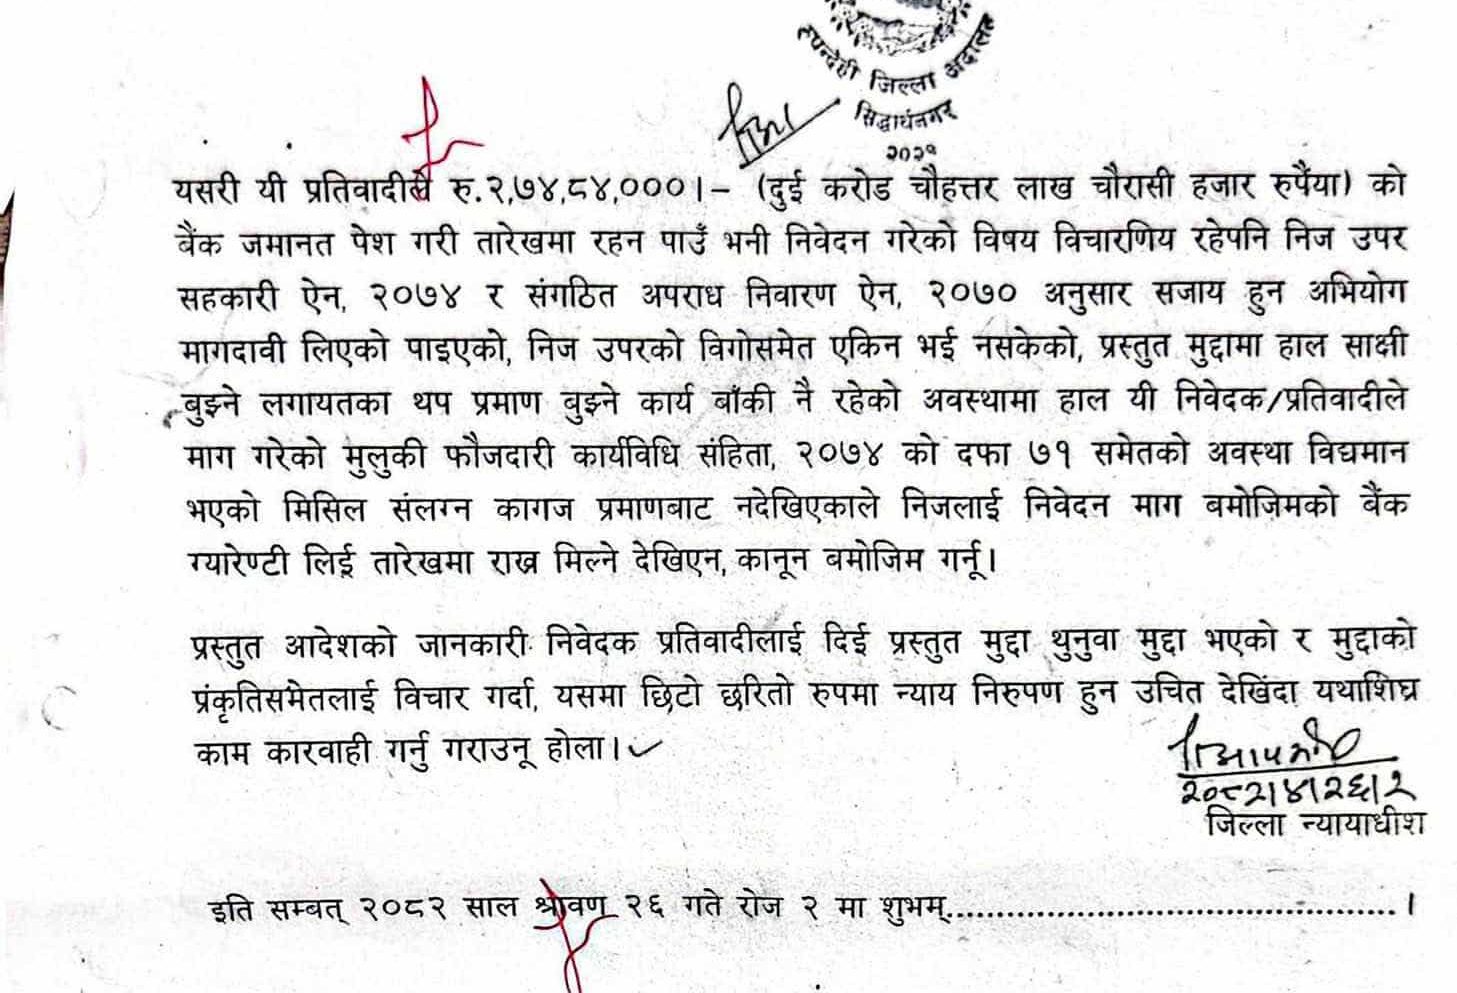 रुपन्देही जिल्ला अदालत
सिद्धार्थनगर
२०२१
यसरी यी प्रतिवादीले रु.२,७४,८४,०००।– (दुई करोड चौहत्तर लाख चौरासी हजार रुपैंया) को
बैंक जमानत पेश गरी तारेखमा रहन पाउँ भनी निवेदन गरेको विषय विचारणिय रहेपनि निज उपर
सहकारी ऐन, २०७४ र संगठित अपराध निवारण ऐन, २०७० अनुसार सजाय हुन अभियोग
मागदावी लिएको पाइएको, निज उपरको विगोसमेत एकिन भई नसकेको, प्रस्तुत मुद्दामा हाल साक्षी
बुझ्ने लगायतका थप प्रमाण बुझ्ने कार्य बाँकी नै रहेको अवस्थामा हाल यी निवेदक/प्रतिवादीले
माग गरेको मुलुकी फौजदारी कार्यविधि संहिता, २०७४ को दफा ७१ समेतको अवस्था विद्यमान
भएको मिसिल संलग्न कागज प्रमाणबाट नदेखिएकाले निजलाई निवेदन माग बमोजिमको बैंक
ग्यारेण्टी लिई तारेखमा राख्न मिल्ने देखिएन, कानून बमोजिम गर्नू।
प्रस्तुत आदेशको जानकारी निवेदक प्रतिवादीलाई दिई प्रस्तुत मुद्दा थुनुवा मुद्दा भएको र मुद्दाको
प्रंकृतिसमेतलाई विचार गर्दा, यसमा छिटो छरितो रुपमा न्याय निरुपण हुन उचित देखिंदा यथाशिघ्र
काम कारवाही गर्नु गराउनू होला।
२०८२।४।२६।२
जिल्ला न्यायाधीश
इति सम्बत् २०८२ साल श्रावण २६ गते रोज २ मा शुभम्..............................................।